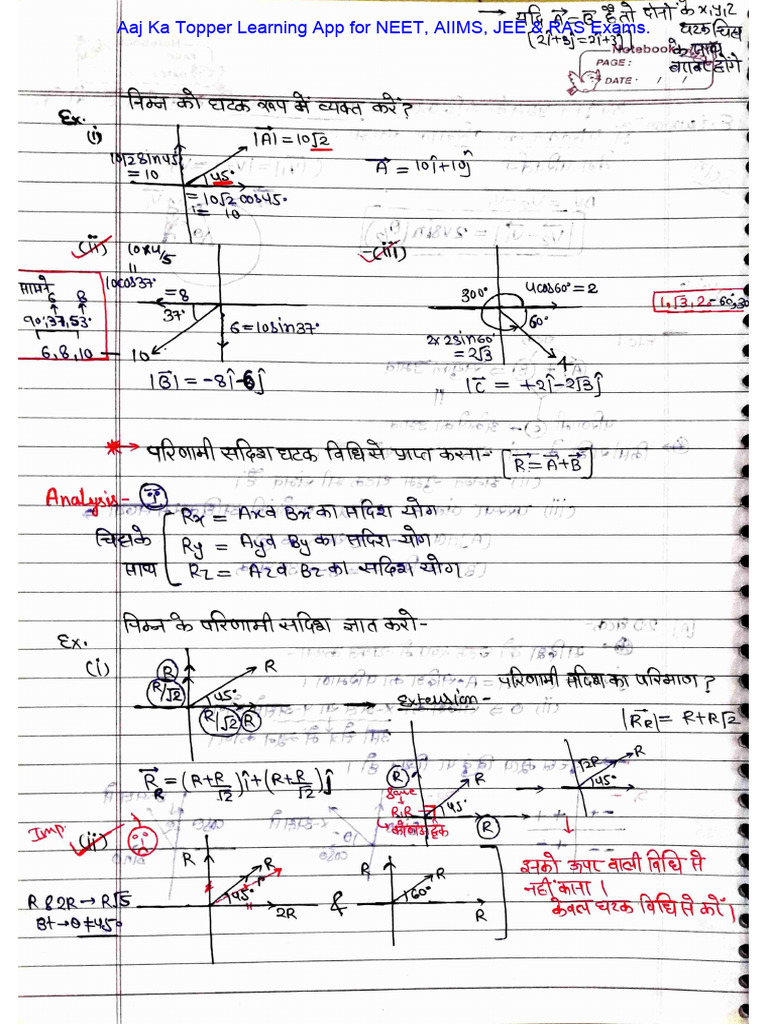 Aaj Ka Topper Learning App for NEET, AIIMS, JEE & RAS Exams.
→ यदि A⃗ = B⃗ है तो दोनों के x,y,z
घटक चिह्न
के साथ
बराबर होंगे
(2î+3ĵ=2î+3ĵ)
Notebook
PAGE:
DATE: / /
Ex. निम्न को घटक रूप में व्यक्त करें?
(i)
|A⃗| = 10√2
10√2 sin45°
= 10
45°
= 10√2 cos45°
= 10
A⃗ = 10î+10ĵ
(ii)
10×4/5
||
10cos37°
= 8
37°
6 = 10sin37°
10
|B⃗| = -8î-6ĵ
सामने
6 8
90°,37°,53°
6,8,10
(iii)
300°
4cos60° = 2
60°
2×2sin60°
= 2√3
4
|C⃗ = +2î-2√3ĵ
1,√3,2→60°,30
* → परिणामी सदिश घटक विधि से प्राप्त करना- [R⃗ = A⃗+B⃗]
Analysis- (i)
चिह्न के साथ
Rx = Ax व Bx का सदिश योग
Ry = Ay व By का सदिश योग
Rz = Az व Bz का सदिश योग
Ex. निम्न के परिणामी सदिश ज्ञात करो-
(i)
R
R/√2
R
45°
R/√2 R
Extension-
परिणामी सदिश का परिमाण?
|R⃗R| = R+R√2
R⃗R = (R+R/√2)î+(R+R/√2)ĵ
R
Same
R,R
R
45°
R
√2R
R
45°
Imp.
(ii)
R & 2R → R√5
But → θ ≠ 45°
R
R
45°
2R
&
R
R
60°
R
इनको ऊपर वाली विधि से
नहीं करना।
केवल घटक विधि से करें।